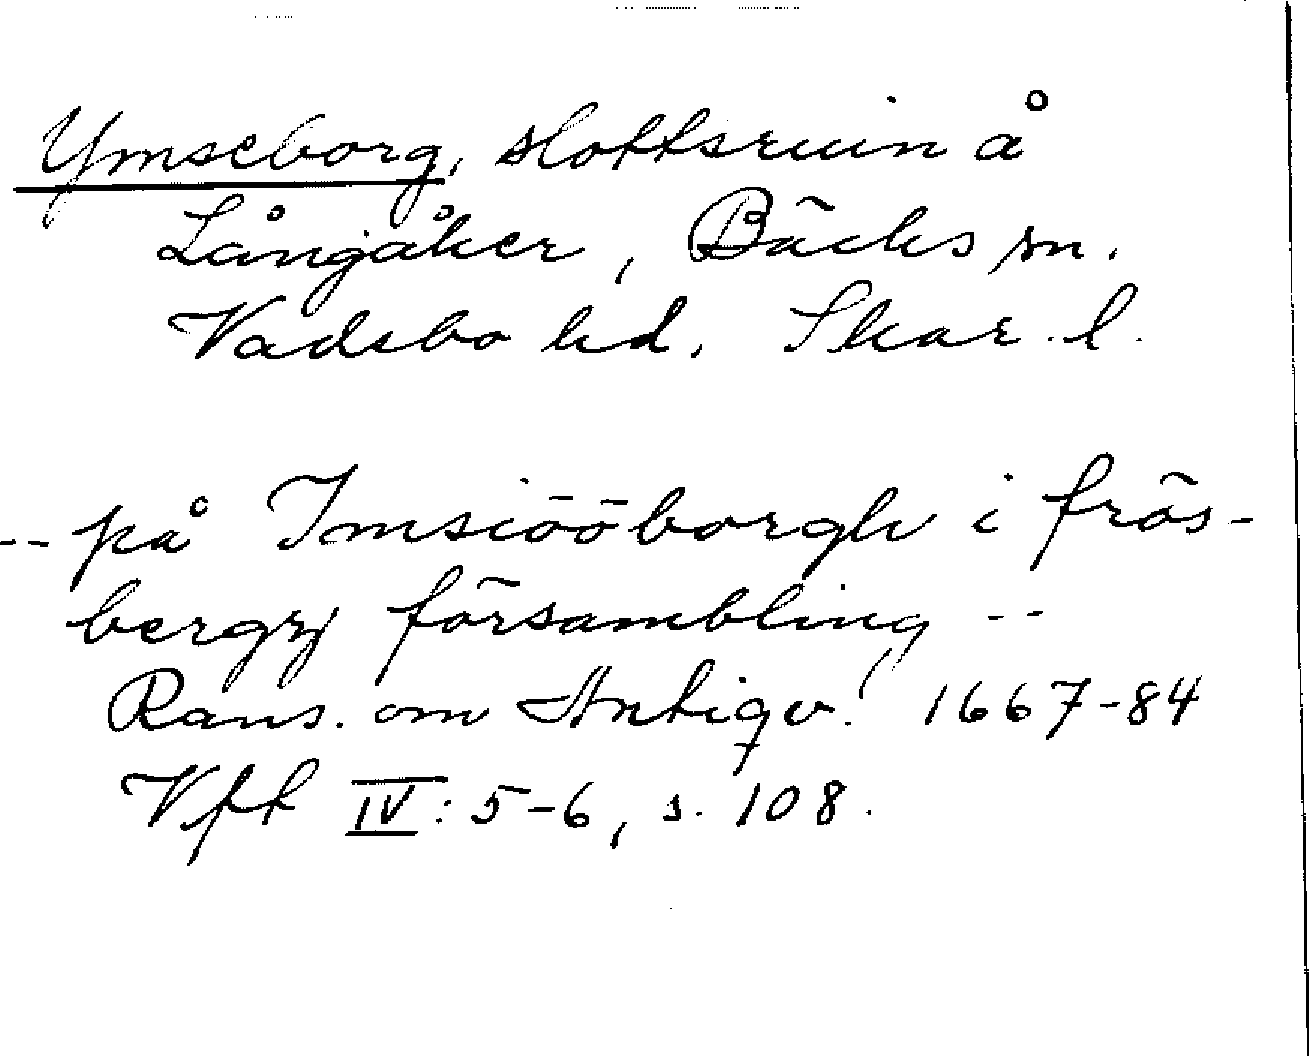 Ymseborg, slottsruin å
Långåker, Bäcks sn.
Vadsbo hd. Skar. l.
-- på Imsiööborgh i frös-
bergz försambling --
Rans. om Antiqv. 1667-84
Vft IV: 5-6, s. 108.